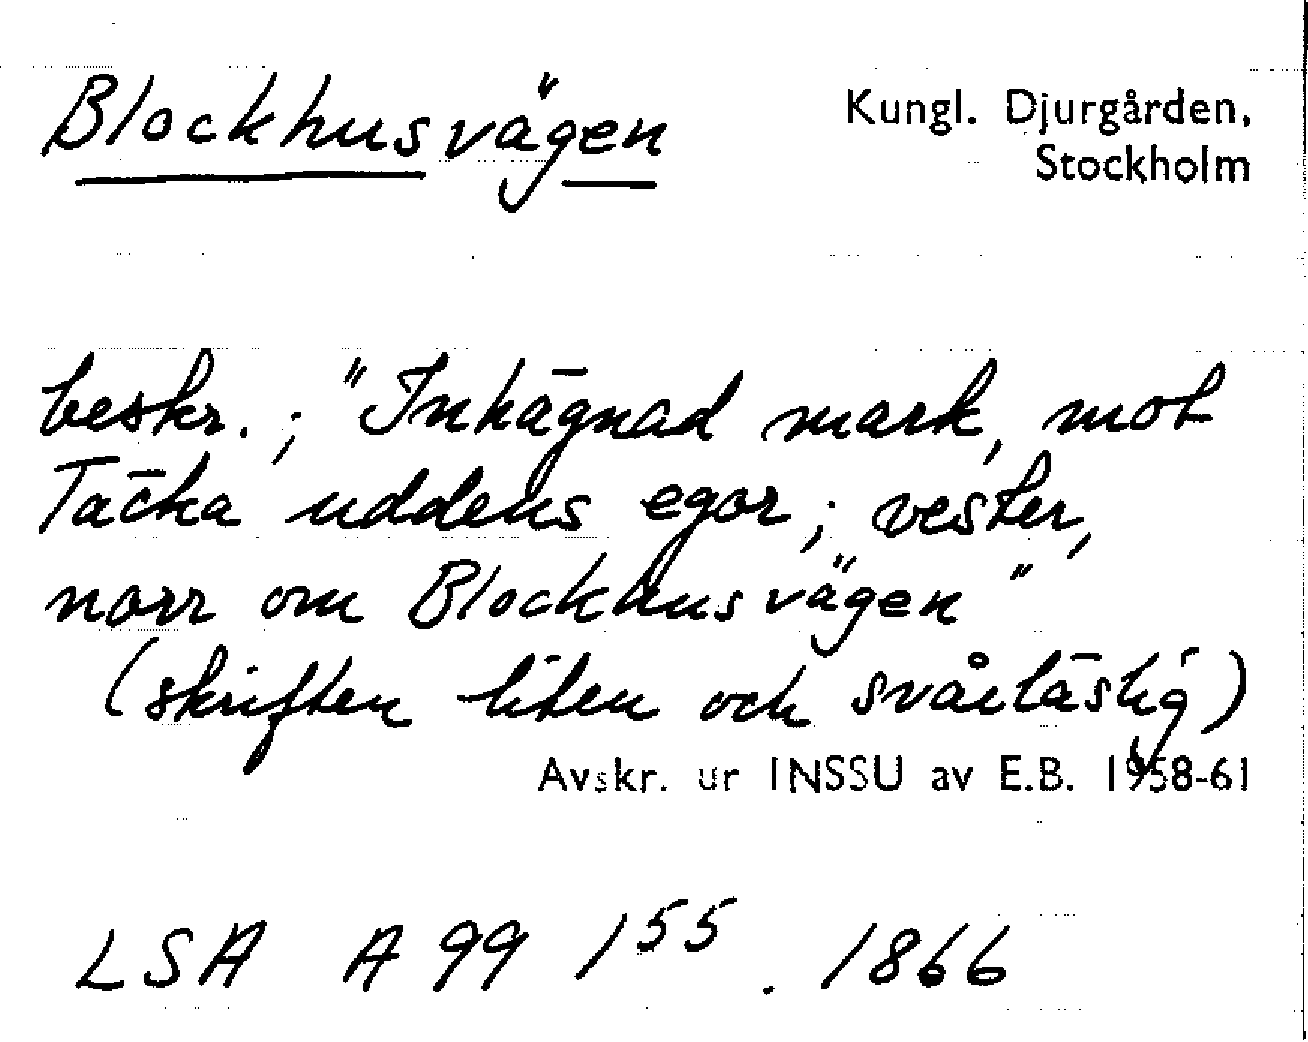 Blockhusvägen
Kungl. Djurgården,
Stockholm
beskr. ; "Inhägnad mark, mot
Täcka uddens egor ; vester,
norr om Blockhusvägen"
(skriften liten och svårläslig)
Avskr. ur INSSU av E.B. 1958-61
LSA A 99 1⁵⁵ . 1866